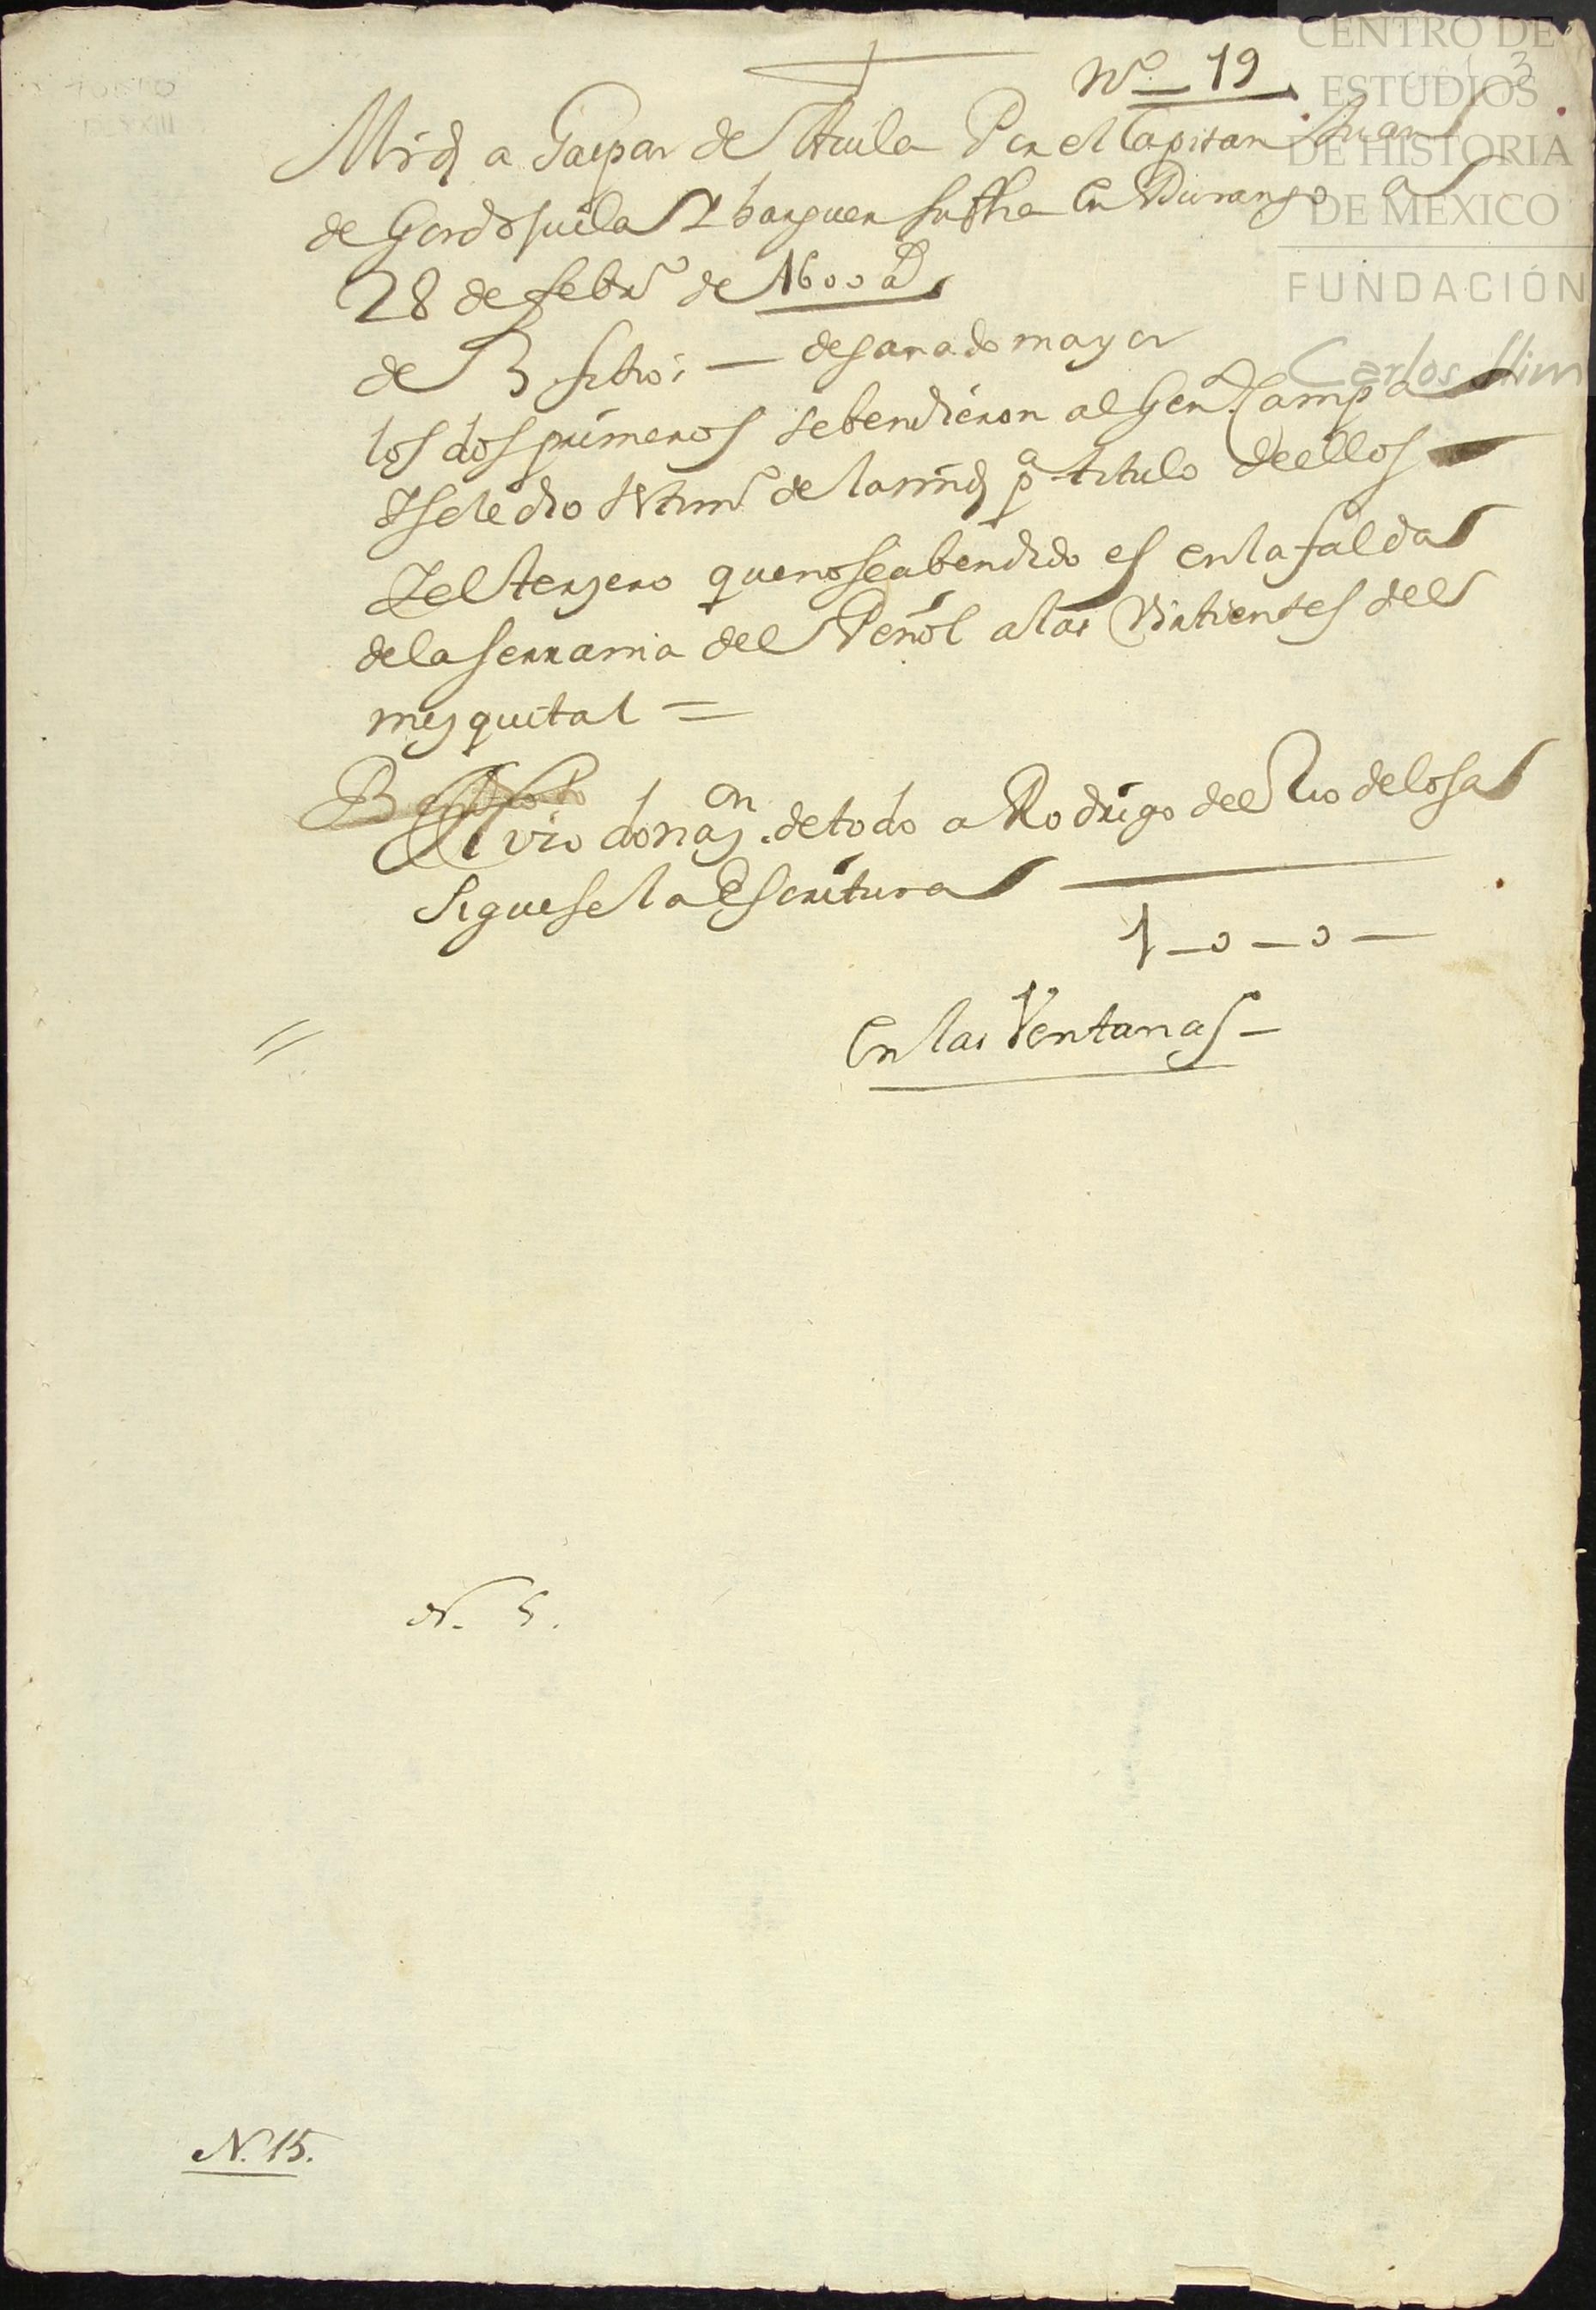 Nº 19
CENTRO DE
ESTUDIOS
DE HISTORIA
DE MÉXICO
FUNDACIÓN
Carlos Slim
3
Mrd a Gaspar de Auila Por el Capitan Juan
de Gordejuila Ybarguen su fha En Durango a
28 de febrº de 1600 as
de 3 sitios — de ganado mayor
los dos primeros se bendieron al Genl Campa
Y se le dio de la mrd pa titulo de ellos
Y el terzero que no se a bendido es en la falda
de la serrania del Peñol a las Virtientes del
mezquital =
vio donaon de todo a Rodrigo del Rio de Losa
siguese la Escritura
1 — o — o —
En las Ventanas —
N. 5.
N. 15.